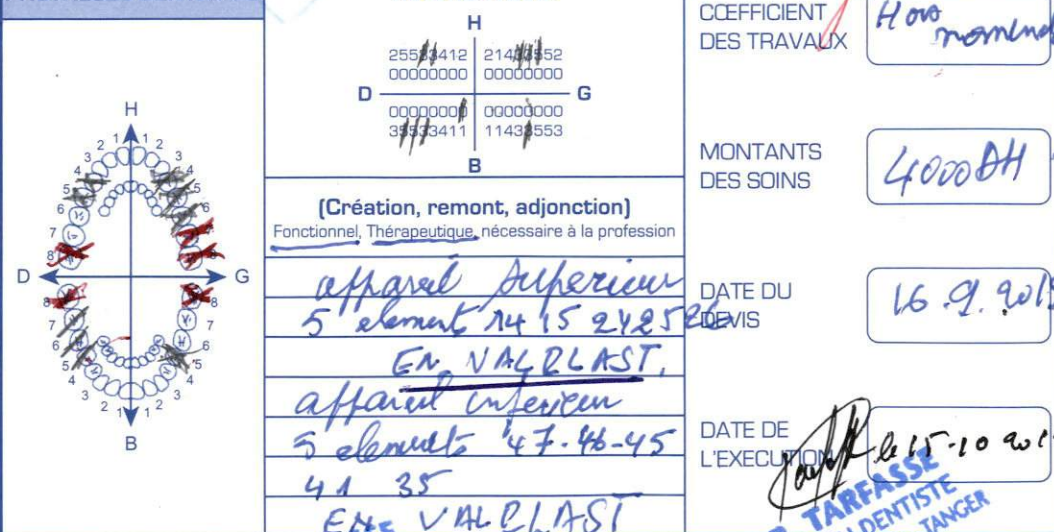 H
25533412 21433552
00000000 00000000
D G
00000000 00000000
35533411 11433553
B
(Création, remont, adjonction)
Fonctionnel, Thérapeutique, nécessaire à la profession
appareil Superieur
5 element 14 15 24 25 26
EN VALPLAST.
appareil inferieur
5 elements 47-46-45
41 35
EN VALPLAST
H
1 1
2 2
3 3
4 4
5 5
6 6
7
8
D G
8 8
7 7
6 6
5 5
4 4
3 3
2 2
1 1
B
CŒFFICIENT
DES TRAVAUX
Hors
MONTANTS
DES SOINS
4000DH
DATE DU
DEVIS
16.9.201
DATE DE
L'EXECUTION
le 15-10 201
TARFASSE
DENTISTE
TANGER